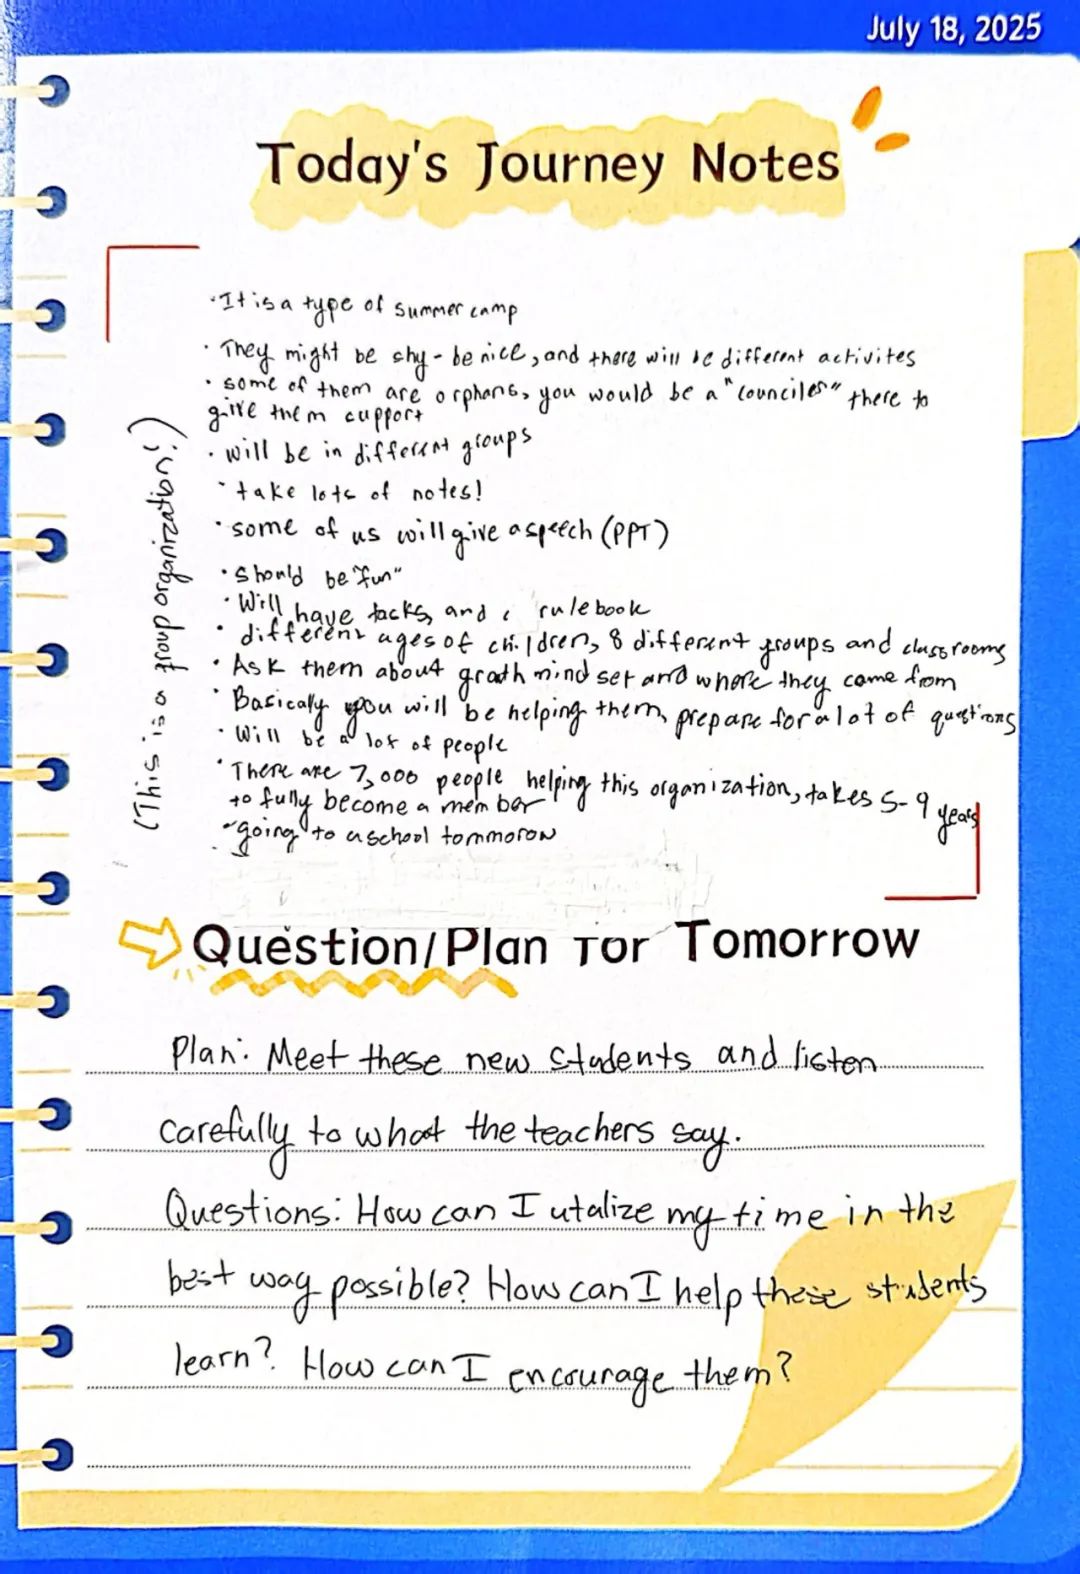 July 18, 2025
Today's Journey Notes
·It is a type of summer camp
· They might be shy - be nice, and there will be different activites
· some of them are orphans, you would be a "counciler" there to
give them support
· will be in different groups
· take lots of notes!
· some of us will give a speech (PPT)
· Should be "fun"
· Will have tacks, and rulebook
· different ages of children, 8 different groups and classrooms
· Ask them about grath mind set and where they came from
· Basically you will be helping them, prepare for a lot of questions
· Will be a lot of people
· There are 7,000 people helping this organization, takes 5-9 years
to fully become a member
- going to a school tommorow
(This is a group organization!)
Question/Plan for Tomorrow
Plan: Meet these new students and listen
carefully to what the teachers say.
Questions: How can I utalize my time in the
best way possible? How can I help these students
learn? How can I encourage them?